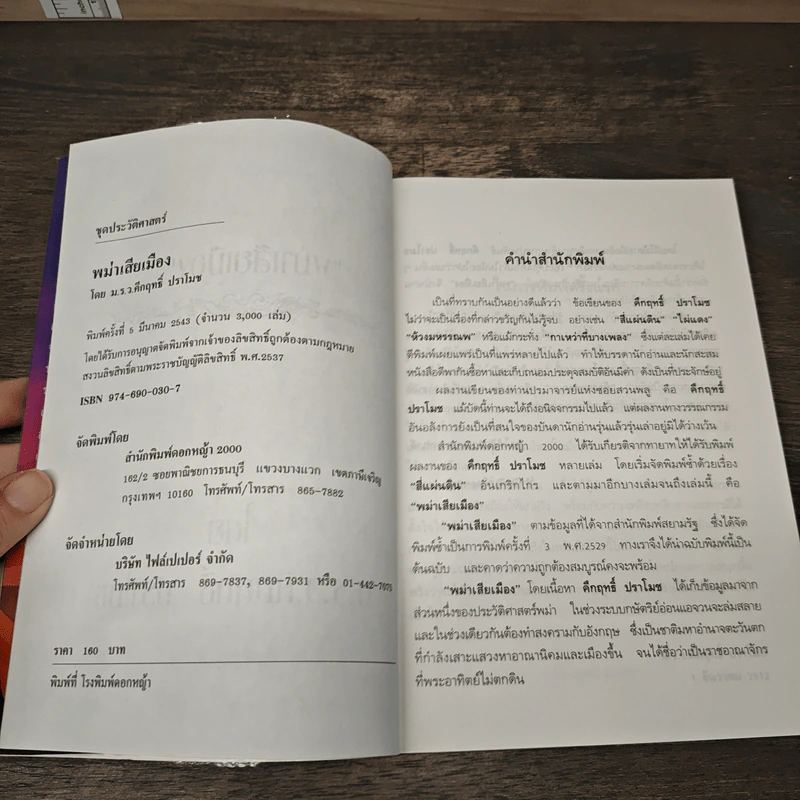 ชุดประวัติศาสตร์
พม่าเสียเมือง
โดย ม.ร.ว.คึกฤทธิ์ ปราโมช
พิมพ์ครั้งที่ 5 มีนาคม 2543 (จำนวน 3,000 เล่ม)
โดยได้รับการอนุญาตจากเจ้าของลิขสิทธิ์ถูกต้องตามกฎหมาย
สงวนลิขสิทธิ์ตามพระราชบัญญัติลิขสิทธิ์ พ.ศ.2537
ISBN 974-690-030-7
จัดพิมพ์โดย
สำนักพิมพ์ดอกหญ้า 2000
162/2 ซอยพาณิชยการธนบุรี แขวงบางแวก เขตภาษีเจริญ
กรุงเทพฯ 10160 โทรศัพท์/โทรสาร 865-7882
จัดจำหน่ายโดย
บริษัท ไฟล์เปเปอร์ จำกัด
โทรศัพท์/โทรสาร 869-7837, 869-7931 หรือ 01-442-7075
ราคา 160 บาท
พิมพ์ที่ โรงพิมพ์ดอกหญ้า
คำนำสำนักพิมพ์
เป็นที่ทราบกันเป็นอย่างดีแล้วว่า ข้อเขียนของ คึกฤทธิ์ ปราโมช
ไม่ว่าจะเป็นเรื่องที่กล่าวขวัญกันไม่รู้จบ อย่างเช่น "สี่แผ่นดิน" "ไผ่แดง"
"ห้วงมหรรณพ" หรือแม้กระทั่ง "กาเหว่าที่บางเพลง" ซึ่งแต่ละเล่มได้เคย
ตีพิมพ์เผยแพร่เป็นที่แพร่หลายไปแล้ว ทำให้บรรดานักอ่านและนักสะสม
หนังสือดีพากันซื้อหาและเก็บถนอมประดุจสมบัติอันมีค่า ดังเป็นที่ประจักษ์อยู่
ผลงานเขียนของท่านปรมาจารย์แห่งซอยสวนพลู คือ คึกฤทธิ์
ปราโมช แม้บัดนี้ท่านจะได้ถึงอนิจจกรรมไปแล้ว แต่ผลงานทางวรรณกรรม
อันอลังการยังเป็นที่สนใจของบันดานักอ่านรุ่นแล้วรุ่นเล่าอยู่มิได้ว่างเว้น
สำนักพิมพ์ดอกหญ้า 2000 ได้รับเกียรติจากทายาทให้ได้รับพิมพ์
ผลงานของ คึกฤทธิ์ ปราโมช หลายเล่ม โดยเริ่มจัดพิมพ์ซ้ำด้วยเรื่อง
"สี่แผ่นดิน" อันเกริกไกร และตามมาอีกบางเล่มจนถึงเล่มนี้ คือ
"พม่าเสียเมือง"
"พม่าเสียเมือง" ตามข้อมูลที่ได้จากสำนักพิมพ์สยามรัฐ ซึ่งได้จัด
พิมพ์ซ้ำเป็นการพิมพ์ครั้งที่ 3 พ.ศ.2529 ทางเราจึงได้นำฉบับพิมพ์นี้เป็น
ต้นฉบับ และคาดว่าความถูกต้องสมบูรณ์คงจะพร้อม
"พม่าเสียเมือง" โดยเนื้อหา คึกฤทธิ์ ปราโมช ได้เก็บข้อมูลมาจาก
ส่วนหนึ่งของประวัติศาสตร์พม่า ในช่วงระบบกษัตริย์อ่อนแอจวนจะล่มสลาย
และในช่วงเดียวกันต้องทำสงครามกับอังกฤษ ซึ่งเป็นชาติมหาอำนาจตะวันตก
ที่กำลังเสาะแสวงหาอาณานิคมและเมืองขึ้น จนได้ชื่อว่าเป็นราชอาณาจักร
ที่พระอาทิตย์ไม่ตกดิน